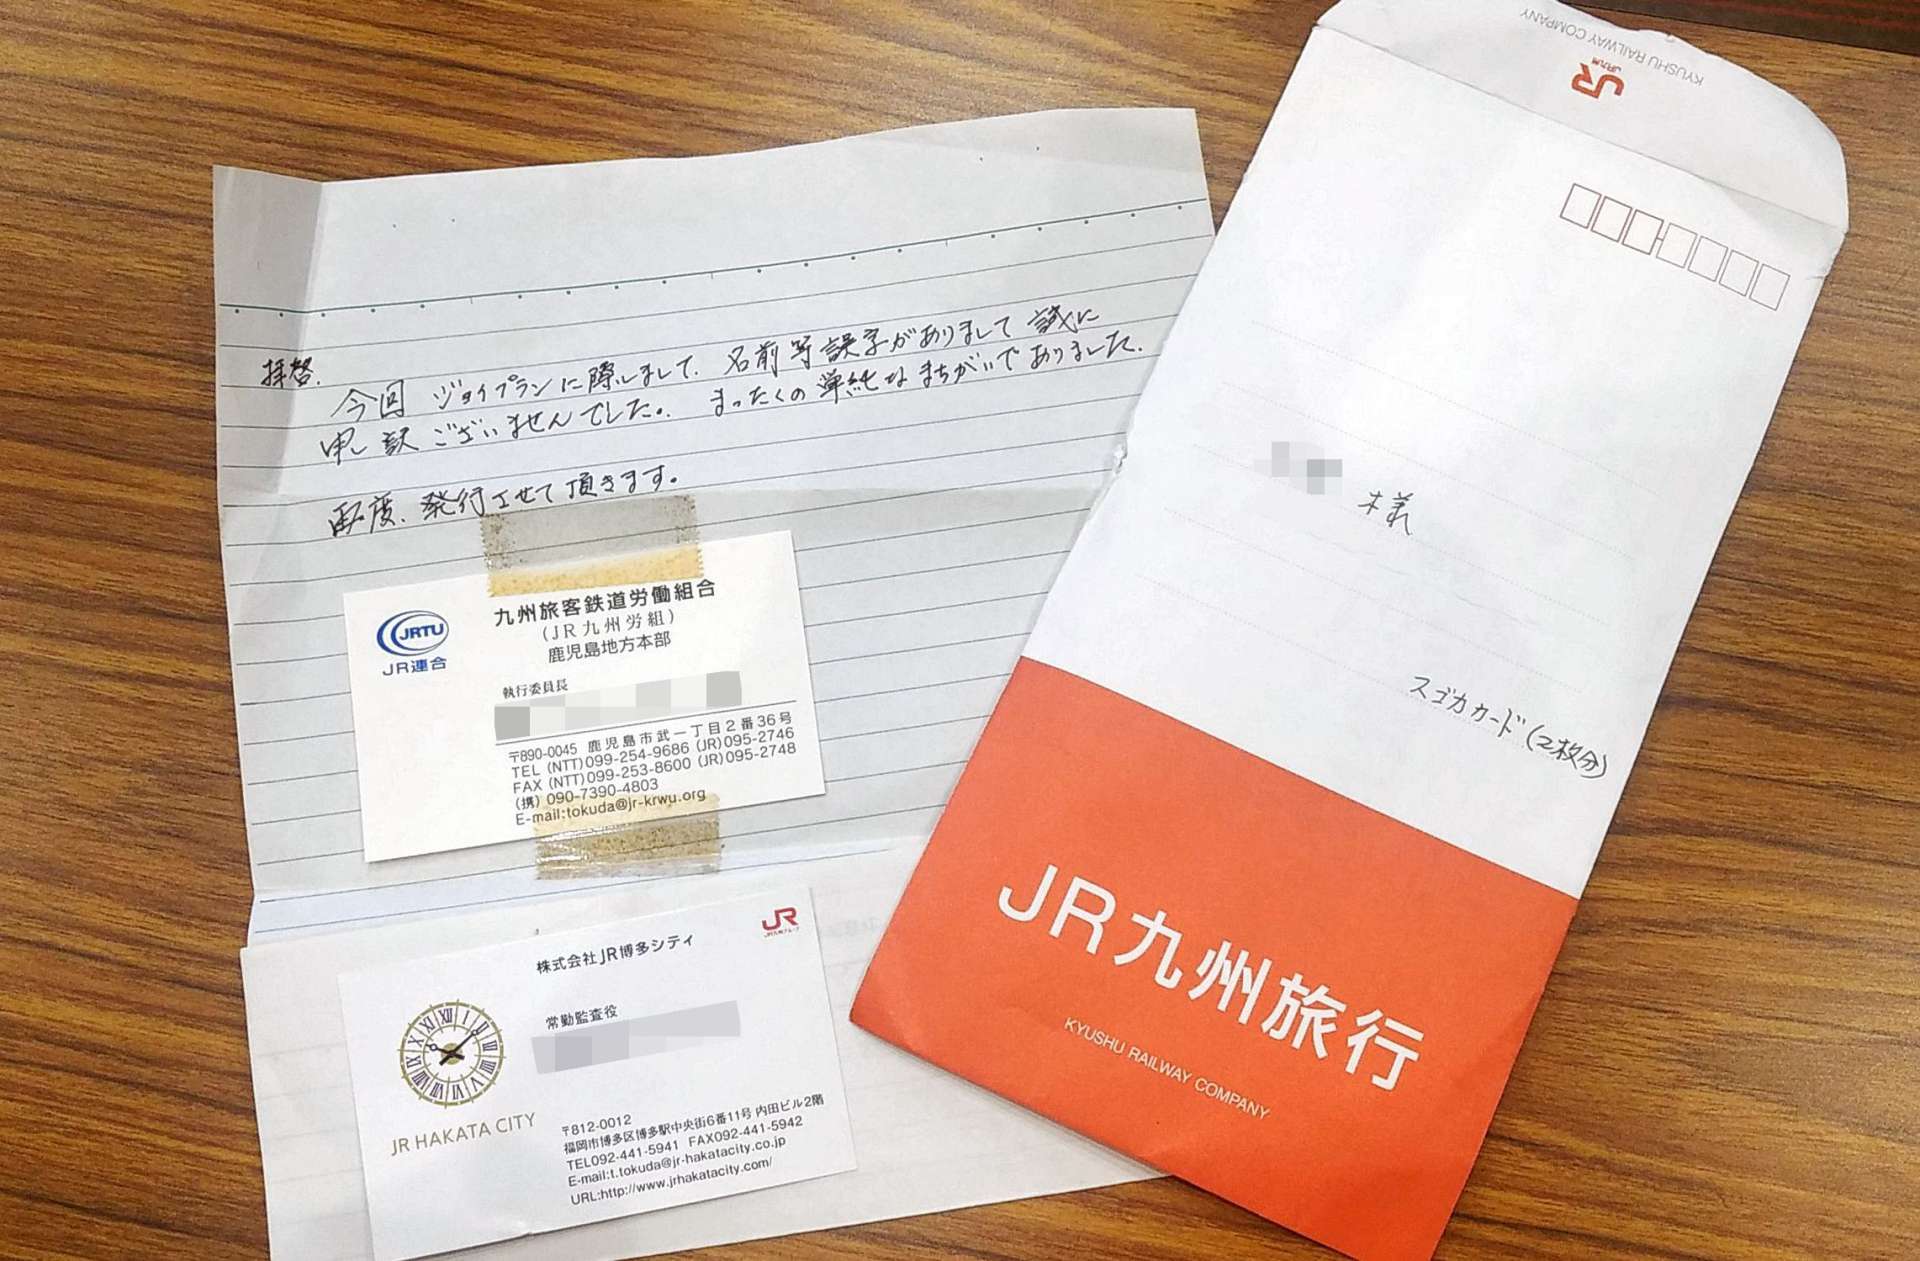 拝啓.
今回 ジョイプランに際しまして、名前等誤字がありまして 誠に
申し訳 ございませんでした。 まったくの単純なまちがいでありました.
再度、発行させて頂きます。
JRTU
JR連合
九州旅客鉄道労働組合
(JR九州労組)
鹿児島地方本部
執行委員長
〒890-0045 鹿児島市武一丁目2番36号
TEL (NTT)099-254-9686 (JR)095-2746
FAX (NTT)099-253-8600 (JR)095-2748
(携) 090-7390-4803
E-mail:tokuda@jr-krwu.org
株式会社JR博多シティ
JR
JR九州グループ
常勤監査役
JR HAKATA CITY
〒812-0012
福岡市博多区博多駅中央街6番11号 内田ビル2階
TEL092-441-5941 FAX092-441-5942
E-mail:t.tokuda@jr-hakatacity.co.jp
URL:http://www.jrhakatacity.com/
KYUSHU RAILWAY COMPANY
JR
JR九州
様
スゴカカード(2枚分)
JR九州旅行
KYUSHU RAILWAY COMPANY